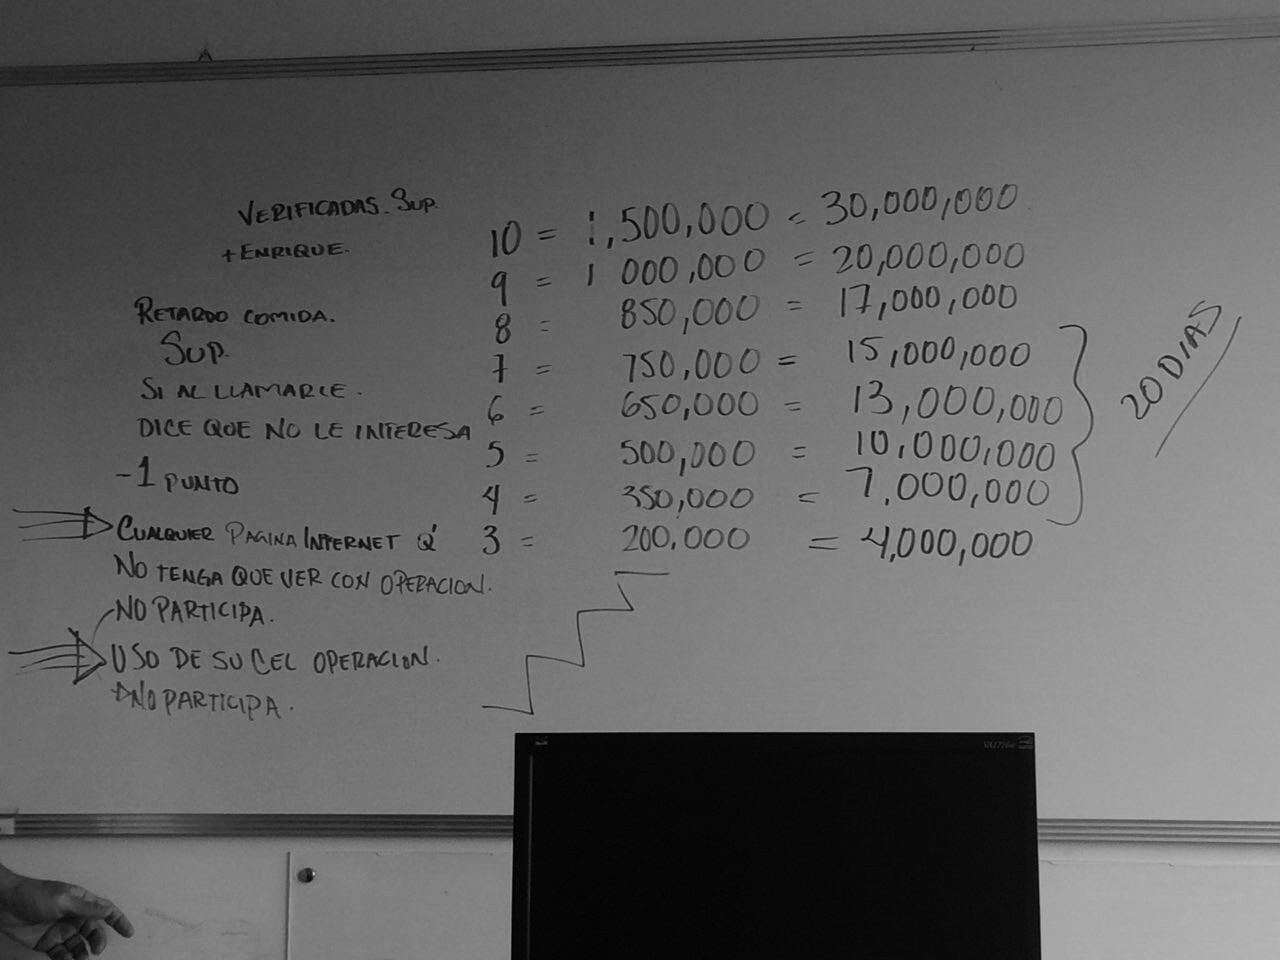 VERIFICADAS. SUP.
+ ENRIQUE.
RETARDO COMIDA.
SUP.
SI AL LLAMARLE.
DICE QUE NO LE INTERESA
-1 PUNTO
CUALQUIER PAGINA INTERNET Q'
NO TENGA QUE VER CON OPERACION.
NO PARTICIPA.
USO DE SU CEL OPERACION.
NO PARTICIPA.
10 = 1,500,000 = 30,000,000
9 = 1 000,000 = 20,000,000
8 = 850,000 = 17,000,000
7 = 750,000 = 15,000,000
6 = 650,000 = 13,000,000
5 = 500,000 = 10,000,000
4 = 350,000 = 7,000,000
3 = 200,000 = 4,000,000
20 DIAS